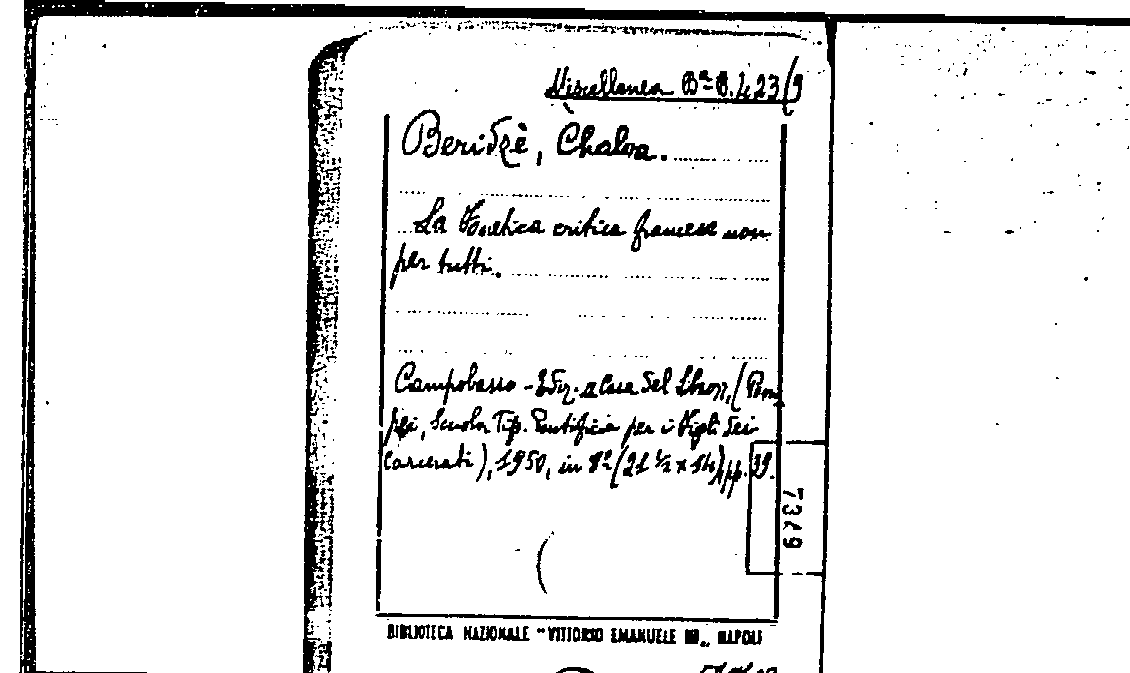 Miscellanea Bª B. 423/9
Beridzè, Chalva.
La Poetica critica francese non
per tutti.
Campobasso - Ediz. Casa del Libro, (Pom
pei, Scuola Tip. Pontificia per i Figli dei
Carcerati), 1950, in 8º (21 ½ x 14) pp. 39.
7349
BIBLIOTECA NAZIONALE "VITTORIO EMANUELE III„ NAPOLI